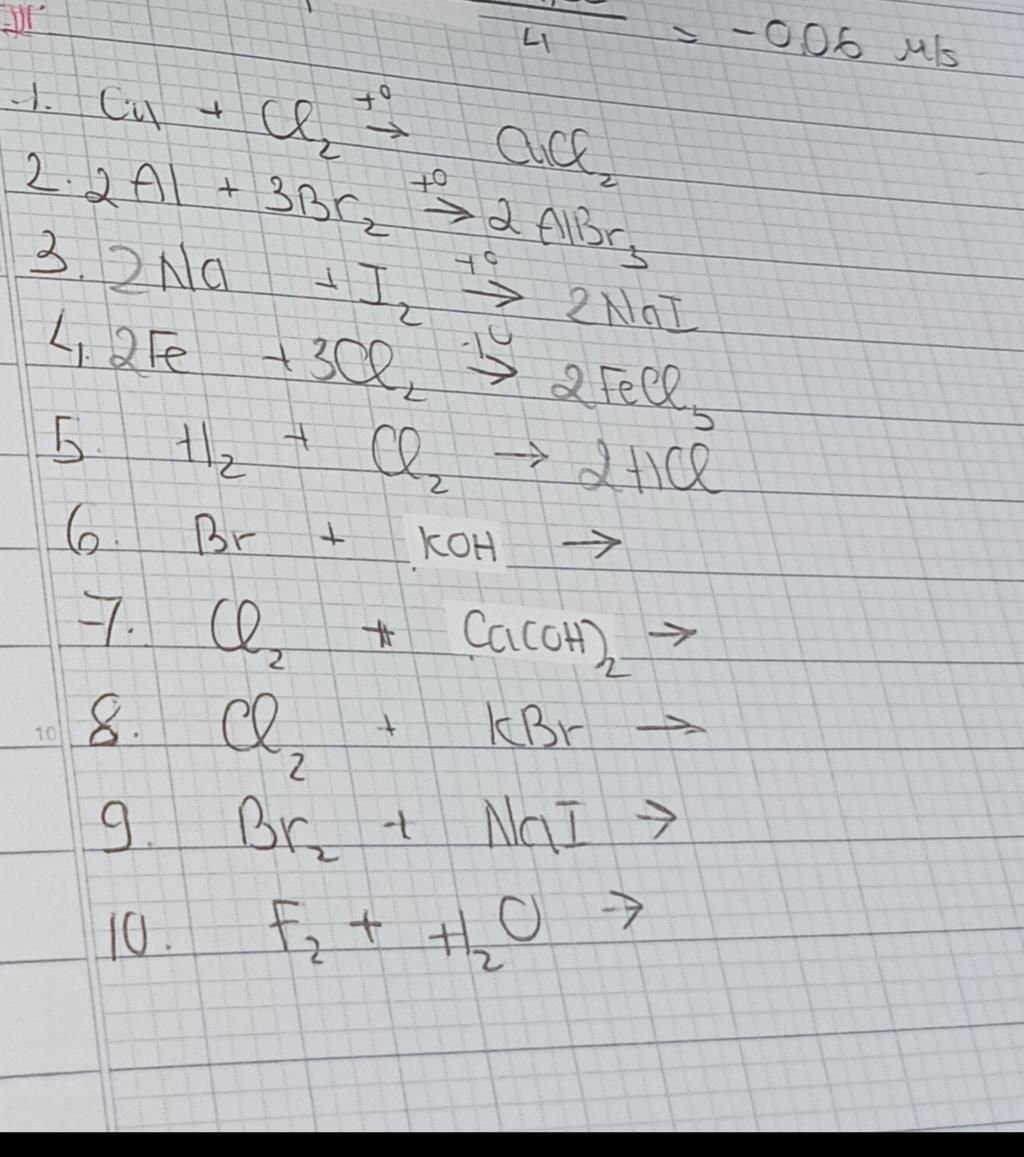 4 = -0,06 M/s
1. Cu + Cl₂ t° → CuCl₂
2. 2Al + 3Br₂ t° → 2AlBr₃
3. 2Na + I₂ t° → 2NaI
4. 2Fe + 3Cl₂ t° → 2FeCl₃
5. H₂ + Cl₂ → 2HCl
6. Br + KOH →
7. Cl₂ + Ca(OH)₂ →
10 8. Cl₂ + KBr →
9. Br₂ + NaI →
10. F₂ + H₂O →